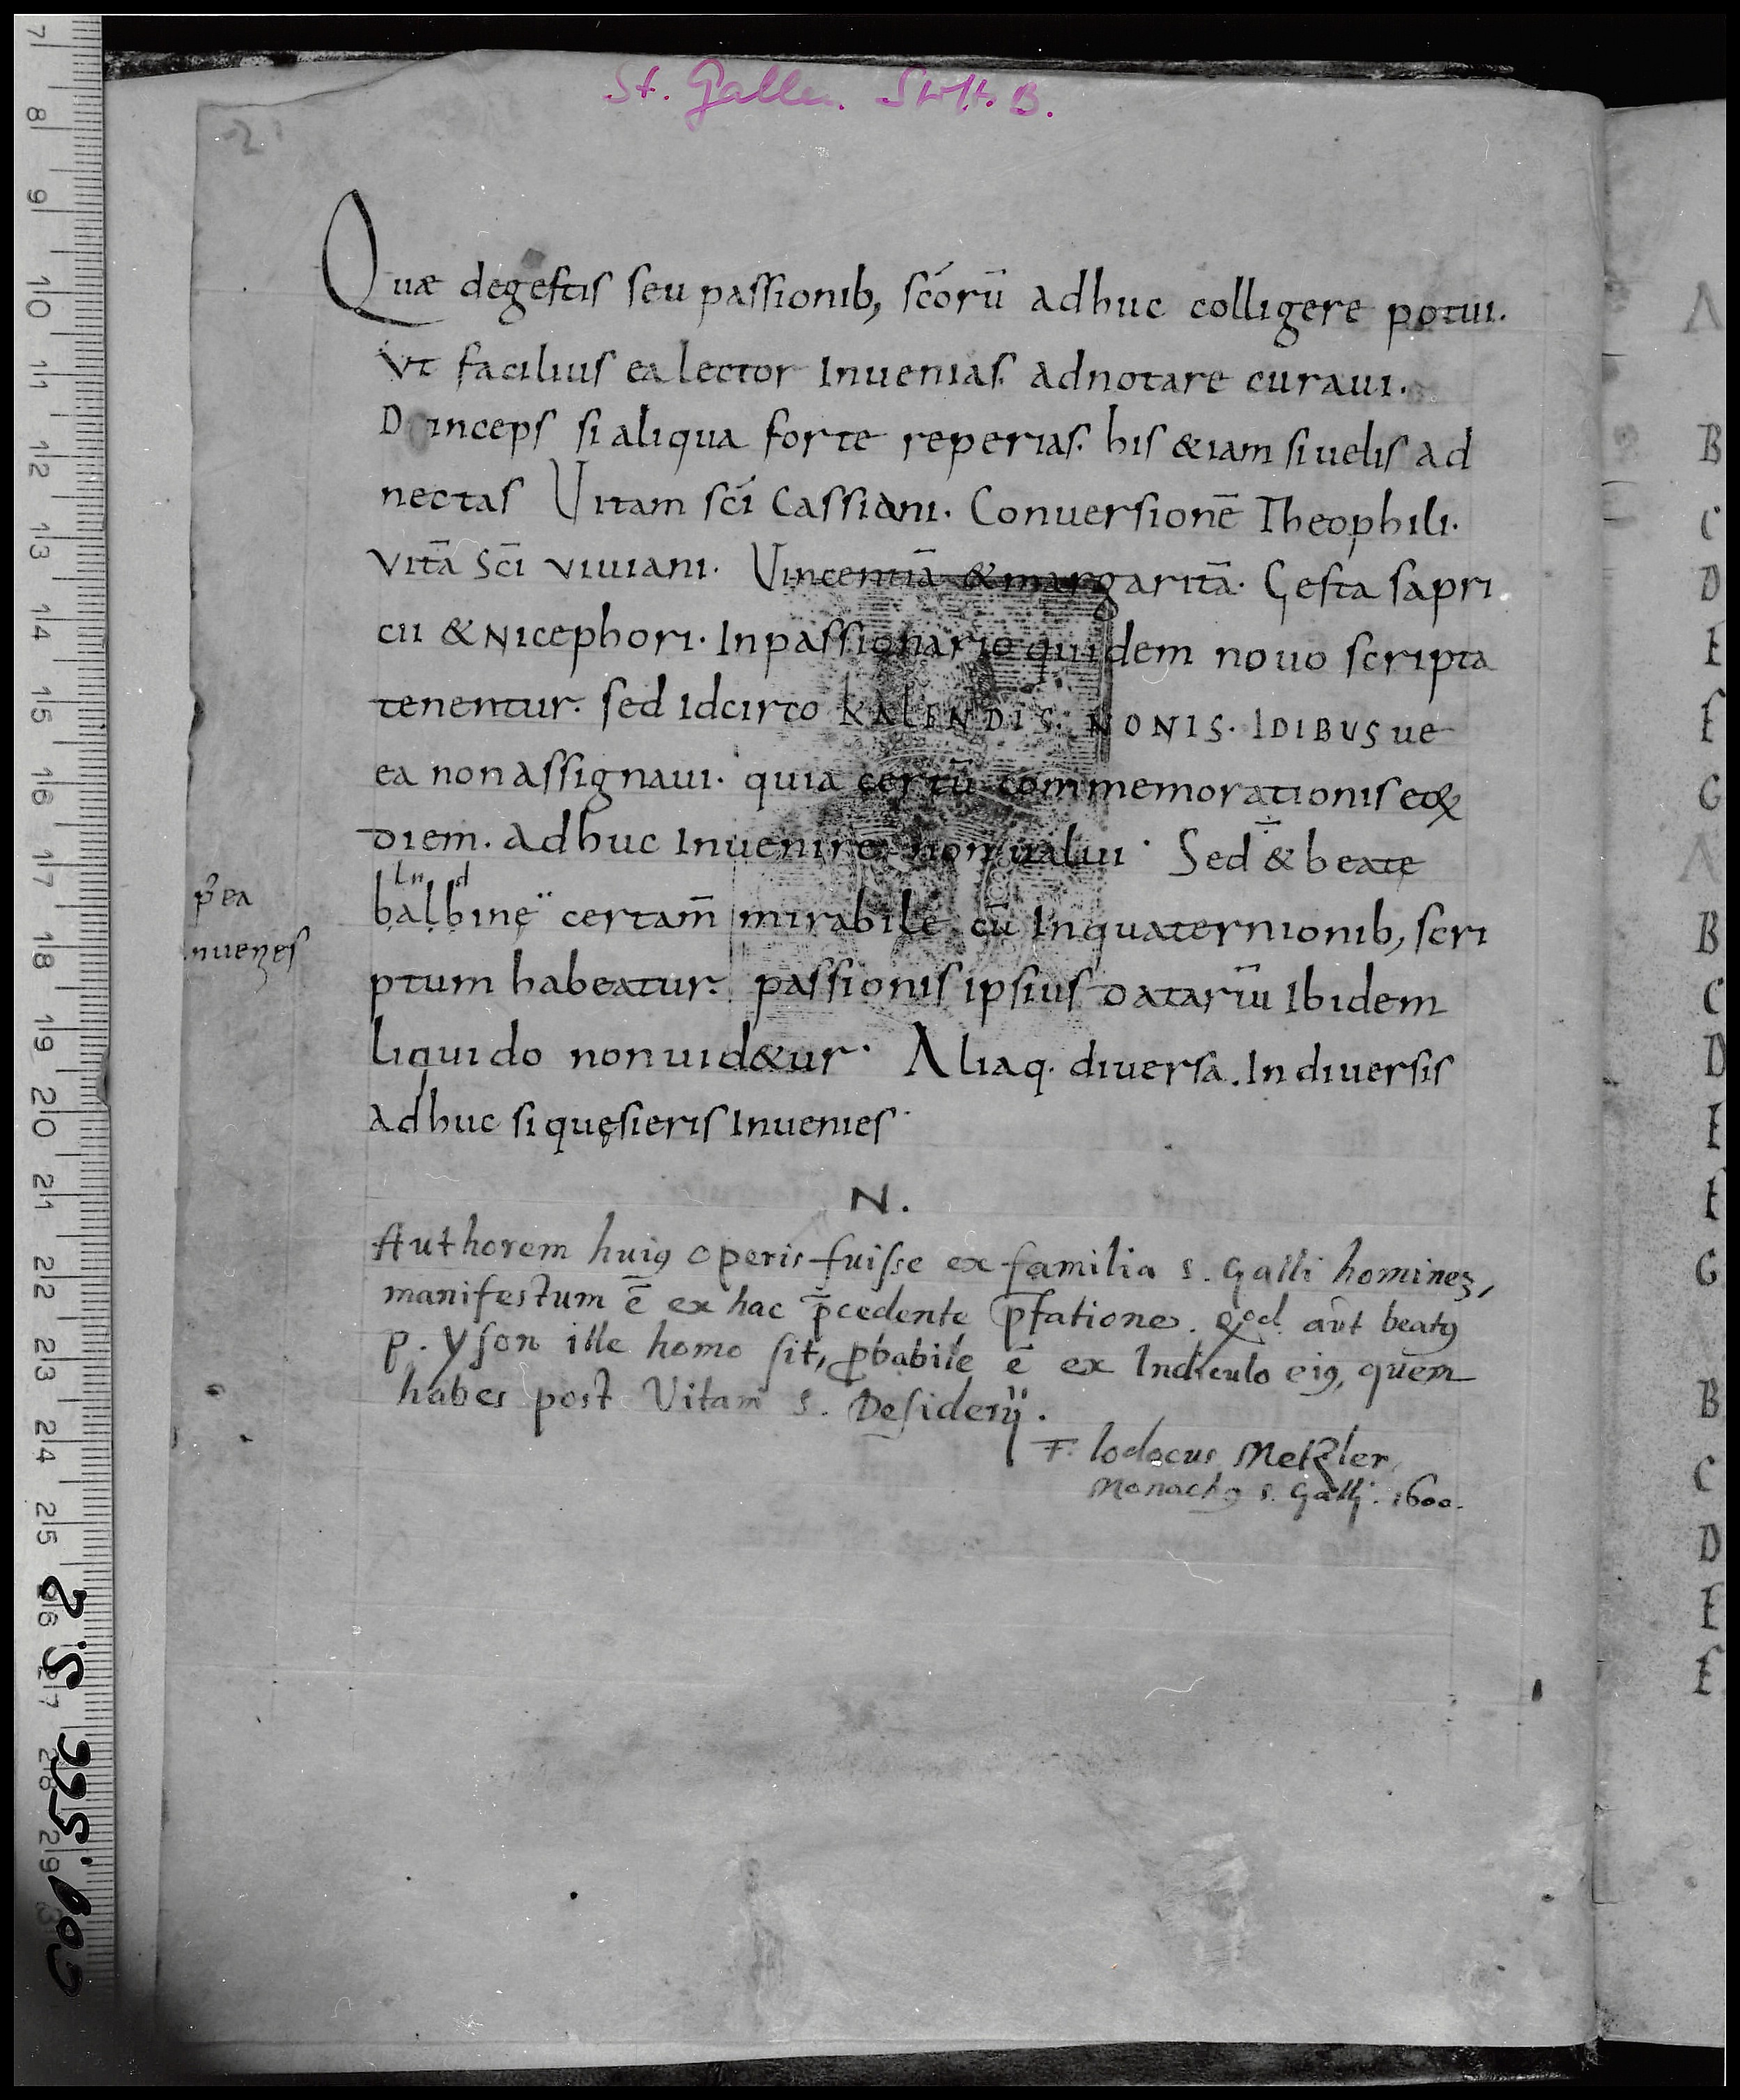 St. Gallen. Stift. B.
2
Quæ degestis seu passionib; scōrū adhuc colligere potui.
Vt facilius ea lector Inuenias. adnotare curaui.
D inceps si aliqua forte reperias. his &iam si uelis ad
nectas Vitam sci Cassiani. Conuersionē Theophili.
vitā Sci viuiani. Vincentiā & margaritā. Gesta sapri
cii & Nicephori. In passionario quidem nouo scripta
tenentur. sed Idcirco KALENDIS. NONIS. IDIBUS ue
ea non assignaui. quia certū commemorationis eoꝝ
diem. adhuc Inuenire non ualui. Sed & beate
Ln d
balbine certam̄ mirabile cū Inquaternionib; scri
p̄ ea
nuenes
ptum habeatur. passionis ipsius datariū Ibidem
liquido non uid&ur. Aliaq. diuersa. In diuersis
adhuc si quęsieris Inuenies
N.
Authorem huiꝰ operis fuisse ex familia s. Galli hominez,
manifestum ē ex hac p̄cedente p̄fatione. Qod aūt beatꝰ
p. Yson ille homo sit, ꝓbabile ē ex Indiculo eiꝰ, quem
habes post Vitam s. Desiderij.
F. Iodocus Metzler,
Monachꝰ s. Galli. 1600.
7
8
9
10
11
12
13
14
15
16
17
18
19
20
21
22
23
24
25
26
27
28
29
A
B
C
D
E
F
G
A
B
C
D
E
F
G
B
C
D
E
F